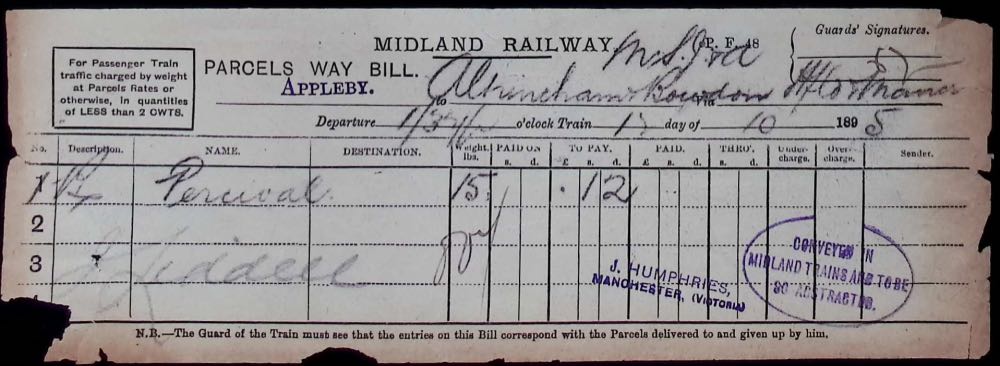 Guards' Signatures.
MIDLAND RAILWAY.
P. F. 48
For Passenger Train
traffic charged by weight
at Parcels Rates or
otherwise, in quantities
of LESS than 2 CWTS.
PARCELS WAY BILL.
APPLEBY. to Altrincham & Bowdon
Departure o'clock Train 17 day of 10 1895
No. Description. NAME. DESTINATION. Weight. lbs. PAID ON s. d. TO PAY. £ s. d. PAID. £ s. d. THRO'. s. d. Under-charge. Over-charge. Sender.
1 Percival 15 . 1 2
2
3 J Liddell
J. HUMPHRIES,
MANCHESTER, (VICTORIA)
CONVEYED IN
MIDLAND TRAINS AND TO BE
SO ABSTRACTED.
N.B.—The Guard of the Train must see that the entries on this Bill correspond with the Parcels delivered to and given up by him.